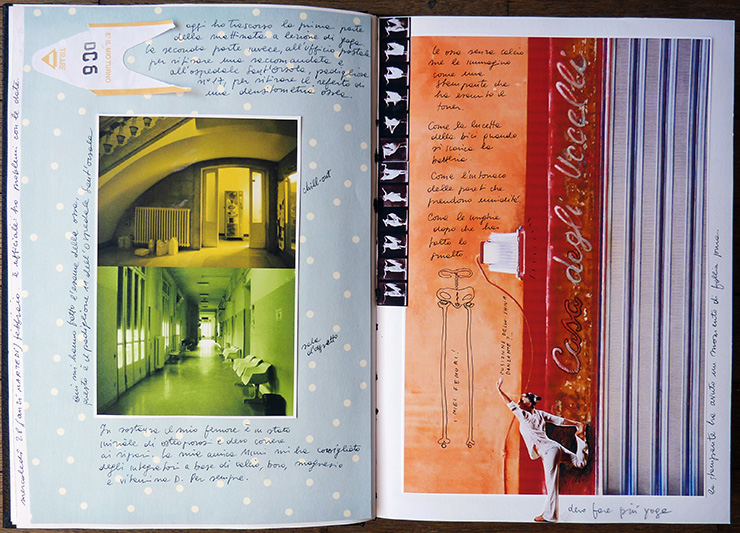 È IL MIO TURNO
DC6
oggi ho trascorso la prima parte
della mattinata a lezione di yoga
la seconda parte invece, all'ufficio postale
per ritirare una raccomandata e
all'ospedale Sant'Orsola, padiglione
n° 17, per ritirare il referto di
una densitometria ossea.
mercoledì 28/anzi MARTEDÌ/febbraio. è ufficiale: ho problemi con le date
qui mi hanno fatto l'esame delle ossa,
questo è il padiglione 11 dell'ospedale Sant'Orsola
chill-out
sala
d'aspetto
In sostanza il mio femore è in stato
iniziale di osteoporosi e devo correre
ai ripari. La mia amica Mami mi ha consigliato
degli integratori a base di calcio, boro, magnesio
e vitamina D. Per sempre.
Le ossa senza calcio
me le immagino
come una
stampante che
ha esaurito il
toner
Come la lucetta
della bici quando
si scarica la
batteria
Come l'intonaco
delle pareti che
prendono umidità.
Come le unghie
dopo che hai
tolto lo
smalto
I MIEI FEMORI!
POSIZIONE DELLO YOGA
DANZANTE?..
Casa degli Uccelli
la stampante ha avuto un momento di follia pura..
devo fare più yoga